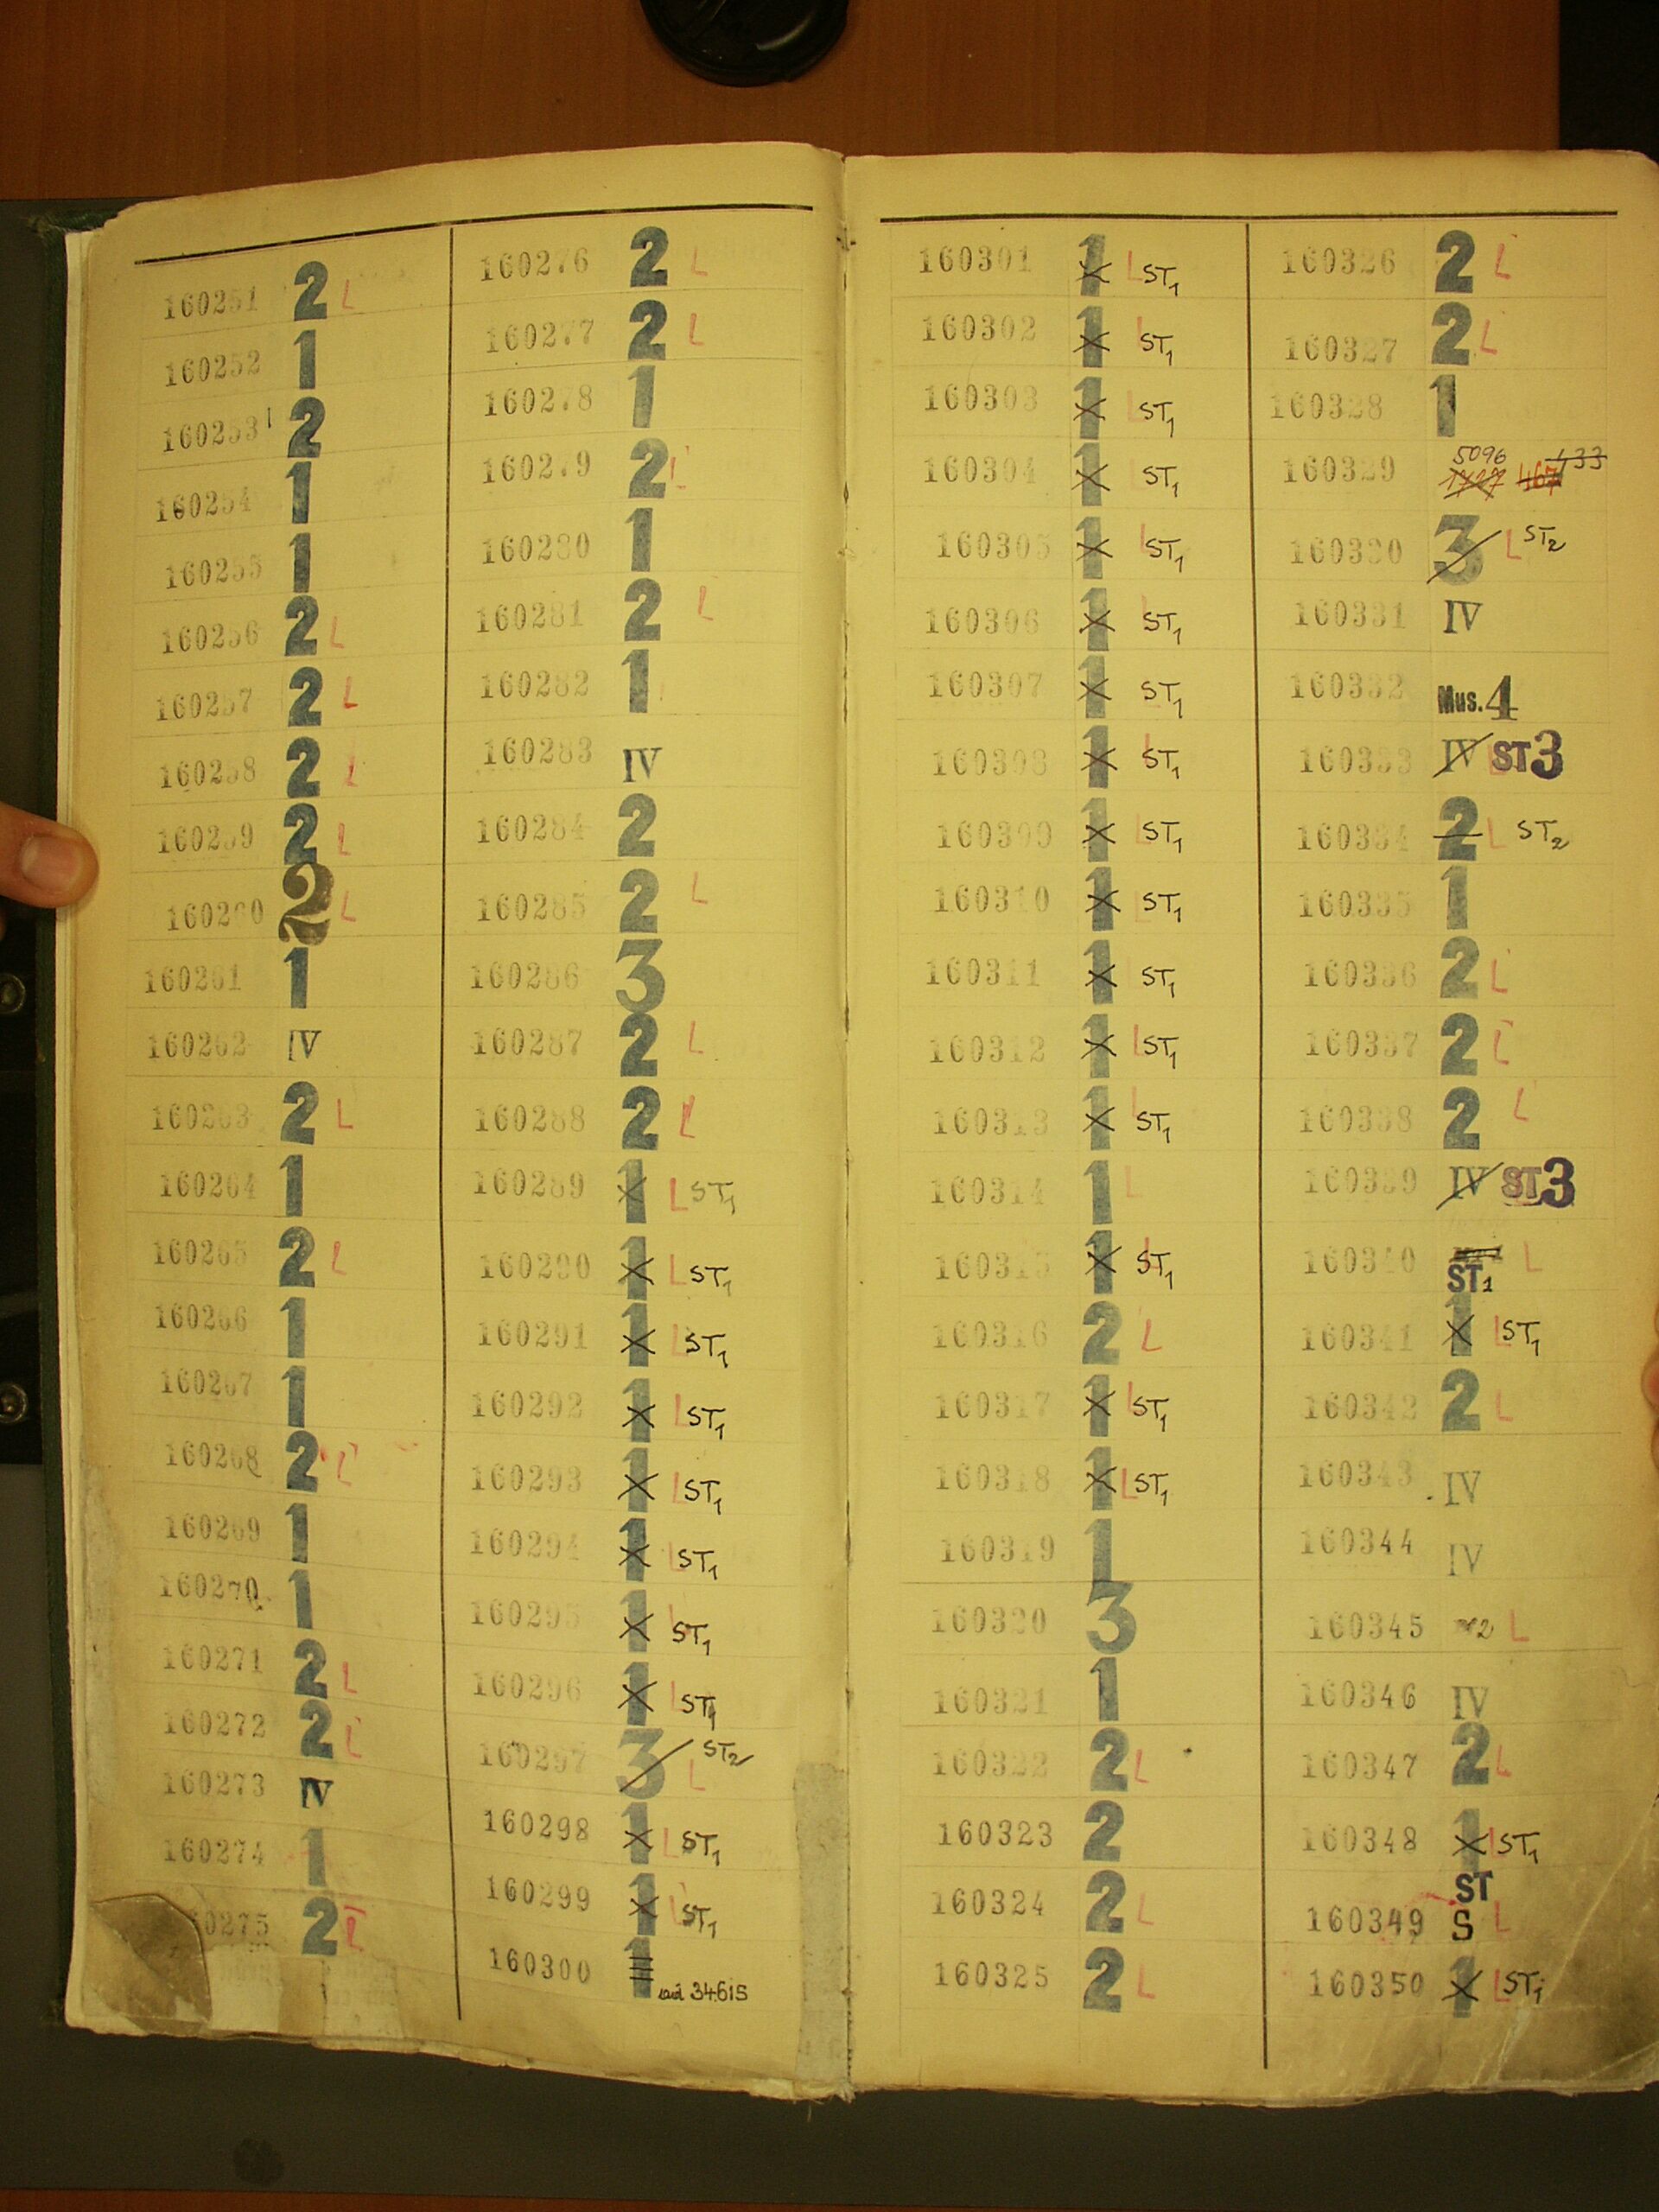 160251 2 L
160252 1
160253 2
160254 1
160255 1
160256 2 L
160257 2 L
160258 2 L
160259 2 L
160260 2 L
160261 1
160262 IV
160263 2 L
160264 1
160265 2 L
160266 1
160267 1
160268 2 L
160269 1
160270 1
160271 2 L
160272 2 L
160273 IV
160274 1
0275 2 L
160276 2 L
160277 2 L
160278 1
160279 2 L
160280 1
160281 2 L
160282 1
160283 IV
160284 2
160285 2 L
160286 3
160287 2 L
160288 2 L
160289 1 L ST1
160290 1 L ST1
160291 1 L ST1
160292 1 L ST1
160293 1 L ST1
160294 1 L ST1
160295 1 L ST1
160296 1 L ST1
160297 3 L ST2
160298 1 L ST1
160299 1 L ST1
160300 1 34615
160301 1 L ST1
160302 1 L ST1
160303 1 L ST1
160304 1 L ST1
160305 1 L ST1
160306 1 L ST1
160307 1 ST1
160308 1 L ST1
160309 1 L ST1
160310 1 L ST1
160311 1 L ST1
160312 1 L ST1
160313 1 L ST1
160314 1 L
160315 1 L ST1
160316 2 L
160317 1 L ST1
160318 1 L ST1
160319 1
160320 3
160321 1
160322 2 L
160323 2
160324 2 L
160325 2 L
160326 2 L
160327 2 L
160328 1
160329 5096 1727 467 433
160330 3 L ST2
160331 IV
160332 Mus.4
160333 IV L ST3
160334 2 L ST2
160335 1
160336 2 L
160337 2 L
160338 2 L
160339 IV ST3
160340 ST1 L
160341 1 L ST1
160342 2 L
160343 IV
160344 IV
160345 2 L
160346 IV
160347 2 L
160348 1 L ST1
160349 ST S L
160350 1 L ST1